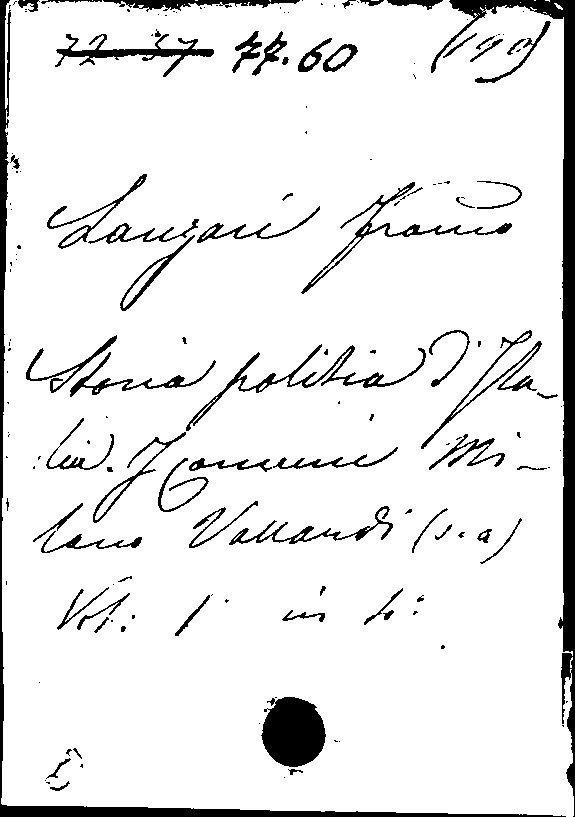 72-37 77.60
Lanzani Franco
Storia politia d'Ita-
lia. I Comuni Mi-
lano Vallardi (s.a)
Vol: 1 in 4: